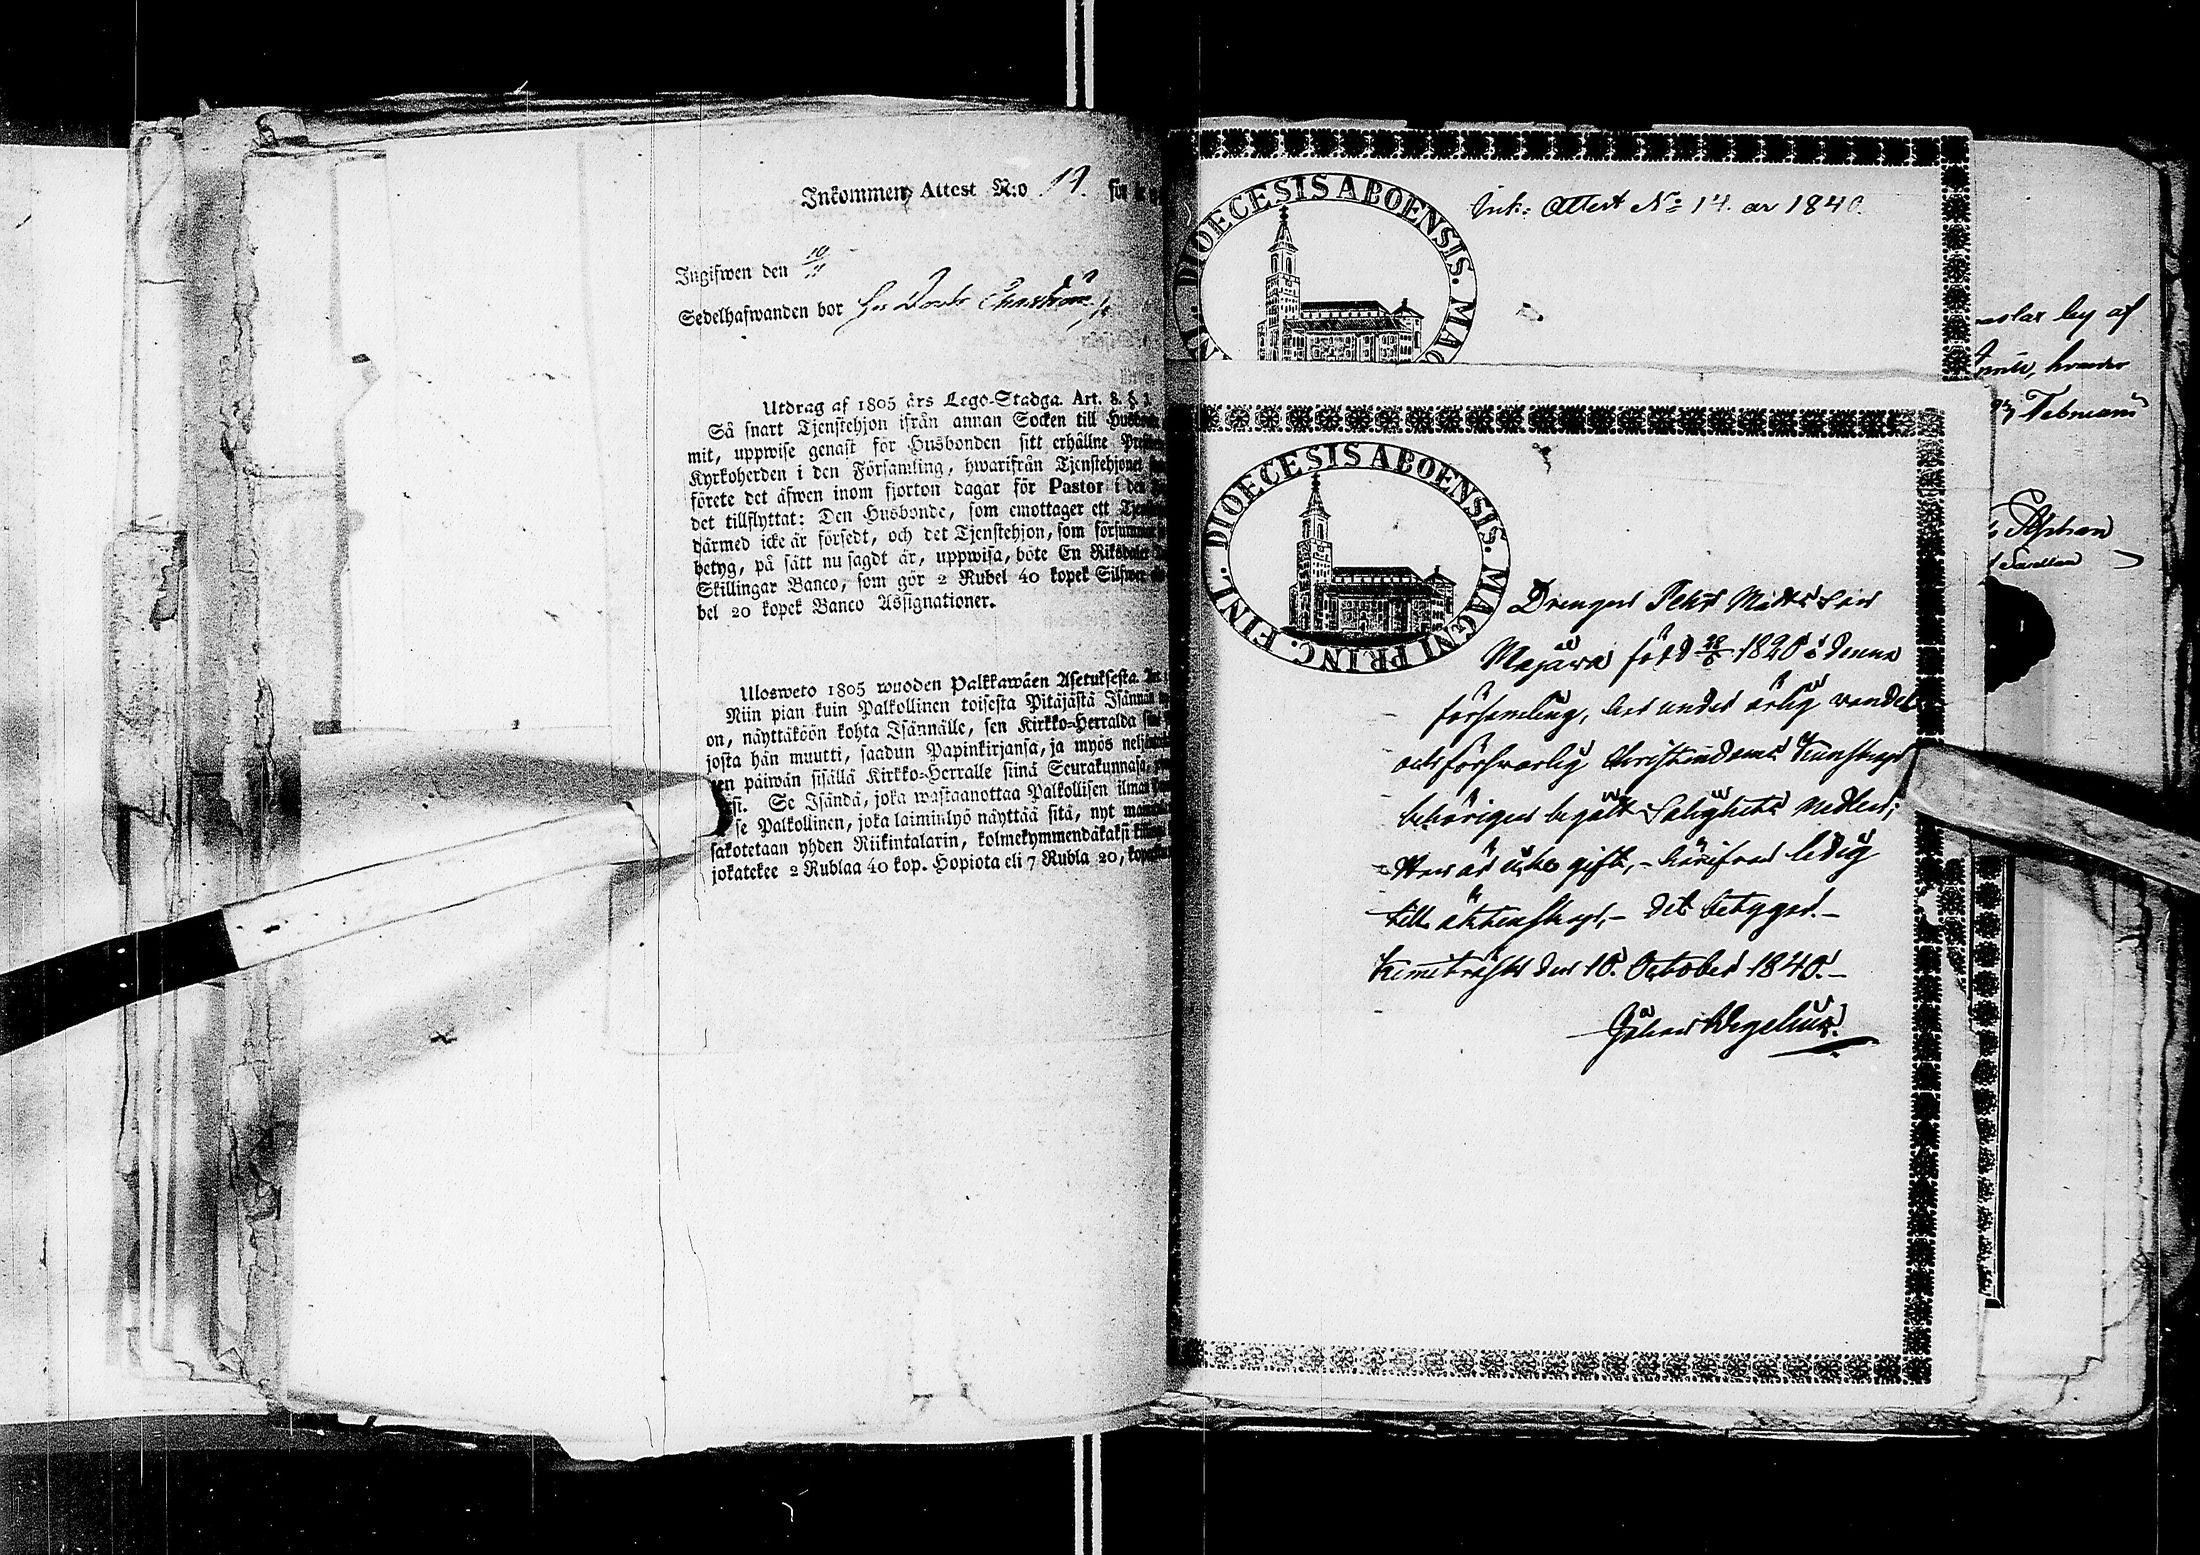 Inkommen Attest N:o 14. för
Ingifwen den 10/11
Sedelhafwanden bor hos
Utdrag af 1805 års Lego-Stadga. Art. 8. §. 3.
Så snart Tjenstehjon ifrån annan Socken till
mit, uppwise genast för Husbonden sitt erhållne
Kyrkoherden i den Församling, hwarifrån Tjenstehjonet
förete det äfwen inom fjorton dagar för Pastor i den
det tillflyttat: Den Husbonde, som emottager ett
därmed icke är försedt, och det Tjenstehjon, som försummar
betyg, på sätt nu sagdt är, uppwisa, böte En Riksdaler
Skillingar Banco, som gör 2 Rubel 40 kopek Silfwer
bel 20 kopek Banco Assignationer.
Ulosweto 1805 wuoden Palkkawäen Asetuksesta.
Niin pian kuin Palkollinen toisesta Pitäjästä Isännän
on, näyttäköön kohta Isännälle, sen Kirkko-Herralda
josta hän muutti, saadun Papinkirjansa, ja myös
päiwän sisällä Kirkko-Herralle siinä Seurakunnasa,
Se Isändä, joka wastaanottaa Palkollisen ilman
se Palkollinen, joka laiminlyö näyttää sitä, nyt
sakotetaan yhden Riikintalarin, kolmekymmendäkaksi
jokatekee 2 Rublaa 40 kop. Hopiota eli 7 Rubla 20,
DIOECESIS ABOENSIS. MAG
Ink: Attest No 14. ar 1840.
DIOECESIS ABOENSIS. MAGNI PRINC. FINL.
Drengen Pehr Matts Son
Majawa född 28/6 1820 i denna
församling, har under ärlig wandel
och förswarlig Christendoms kunskap
behörigen begått Salighets medlen;
Han är icke gift, härifrån ledig
till äktenskap,- det betygar.-
Kemiträsk den 10. October 1840.-
Johan Wegelius.
by af
Februarii